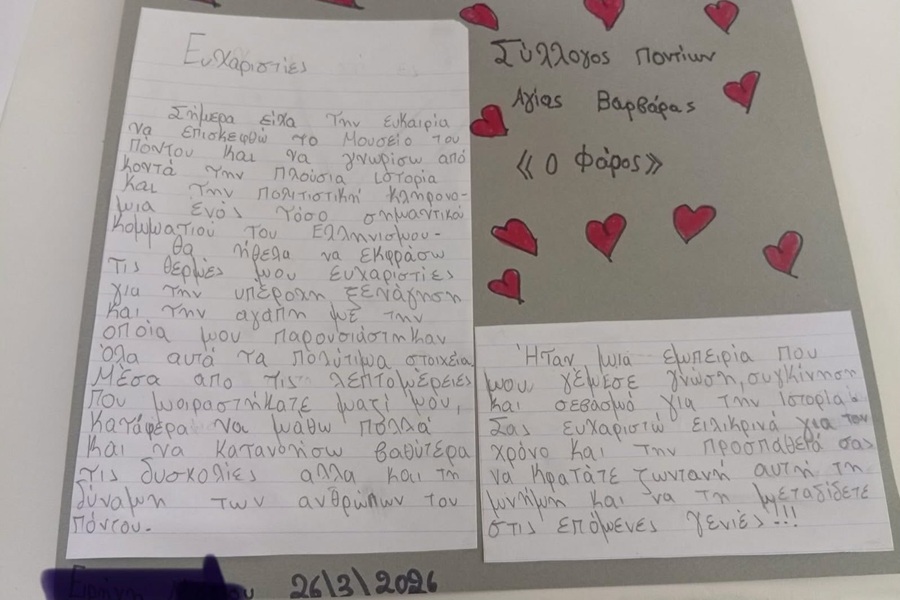 Ευχαριστίες
Σήμερα είχα την ευκαιρία
να επισκεφθώ το Μουσείο του
Πόντου και να γνωρίσω από
κοντά την πλούσια ιστορία
και την πολιτιστική κληρονο-
μια ενός τόσο σημαντικού
κομματιού του Ελληνισμου.
Θα ήθελα να εκφράσω
τις θερμές μου ευχαριστίες
για την υπέροχη ξενάγηση
και την αγαπη με την
οποία μου παρουσιάστηκαν
όλα αυτά τα πολύτιμα στοιχεία.
Μέσα απο τις λεπτομέρειες
που μοιραστήκατε μαζί μου,
κατάφερα να μάθω πολλά
και να κατανοήσω βαθύτερα
τις δυσκολίες αλλα και τη
δύναμη των ανθρώπων του
Πόντου.
Σύλλογος Ποντίων
Αγίας Βαρβάρας
«Ο Φάρος»
Ήταν μια εμπειρία που
μου γέμισε γνώση, συγκίνηση
και σεβασμό για την ιστορία.
Σας ευχαριστώ ειλικρινά για τον
χρόνο και την προσπάθειά σας
να κρατάτε ζωντανή αυτή τη
μνήμη και να τη μεταδίδετε
στις επόμενες γενιές!!!
26/3/2026